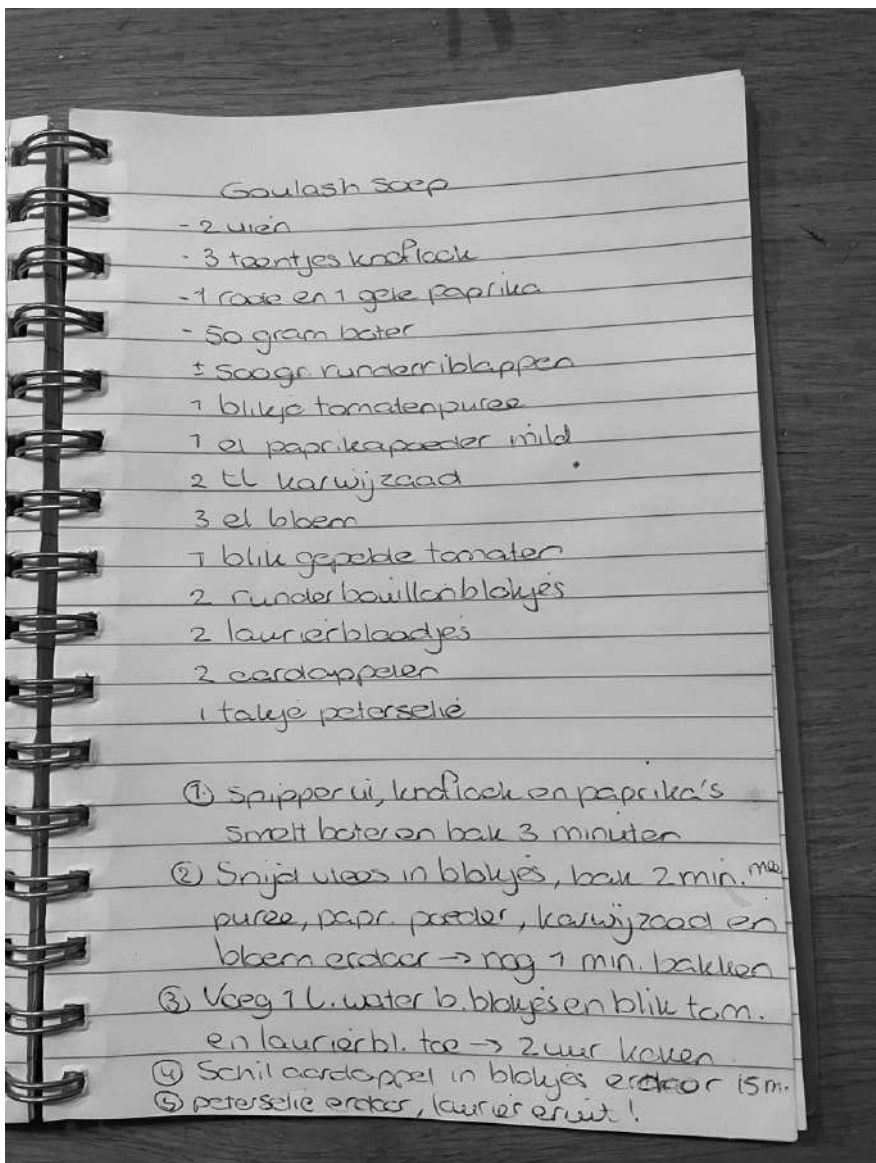 Goulash soep
- 2 uien
- 3 teentjes knoflook
- 1 rode en 1 gele paprika
- 50 gram boter
± 500gr. runderriblappen
1 blikje tomatenpuree
1 el paprikapoeder mild
2 tl karwijzaad
3 el bloem
1 blik gepelde tomaten
2 runderbouillonblokjes
2 laurierblaadjes
2 aardappelen
1 takje peterselie
① snipper ui, knoflook en paprika's
smelt boter en bak 3 minuten
② Snijd vlees in blokjes, bak 2 min. mee
puree, papr. poeder, karwijzaad en
bloem erdoor → nog 1 min. bakken
③ Voeg 1 L. water b.blokjes en blik tom.
en laurierbl. toe → 2 uur koken
④ Schil aardappel in blokjes erdoor 15m.
⑤ peterselie erdoor, laurier eruit!